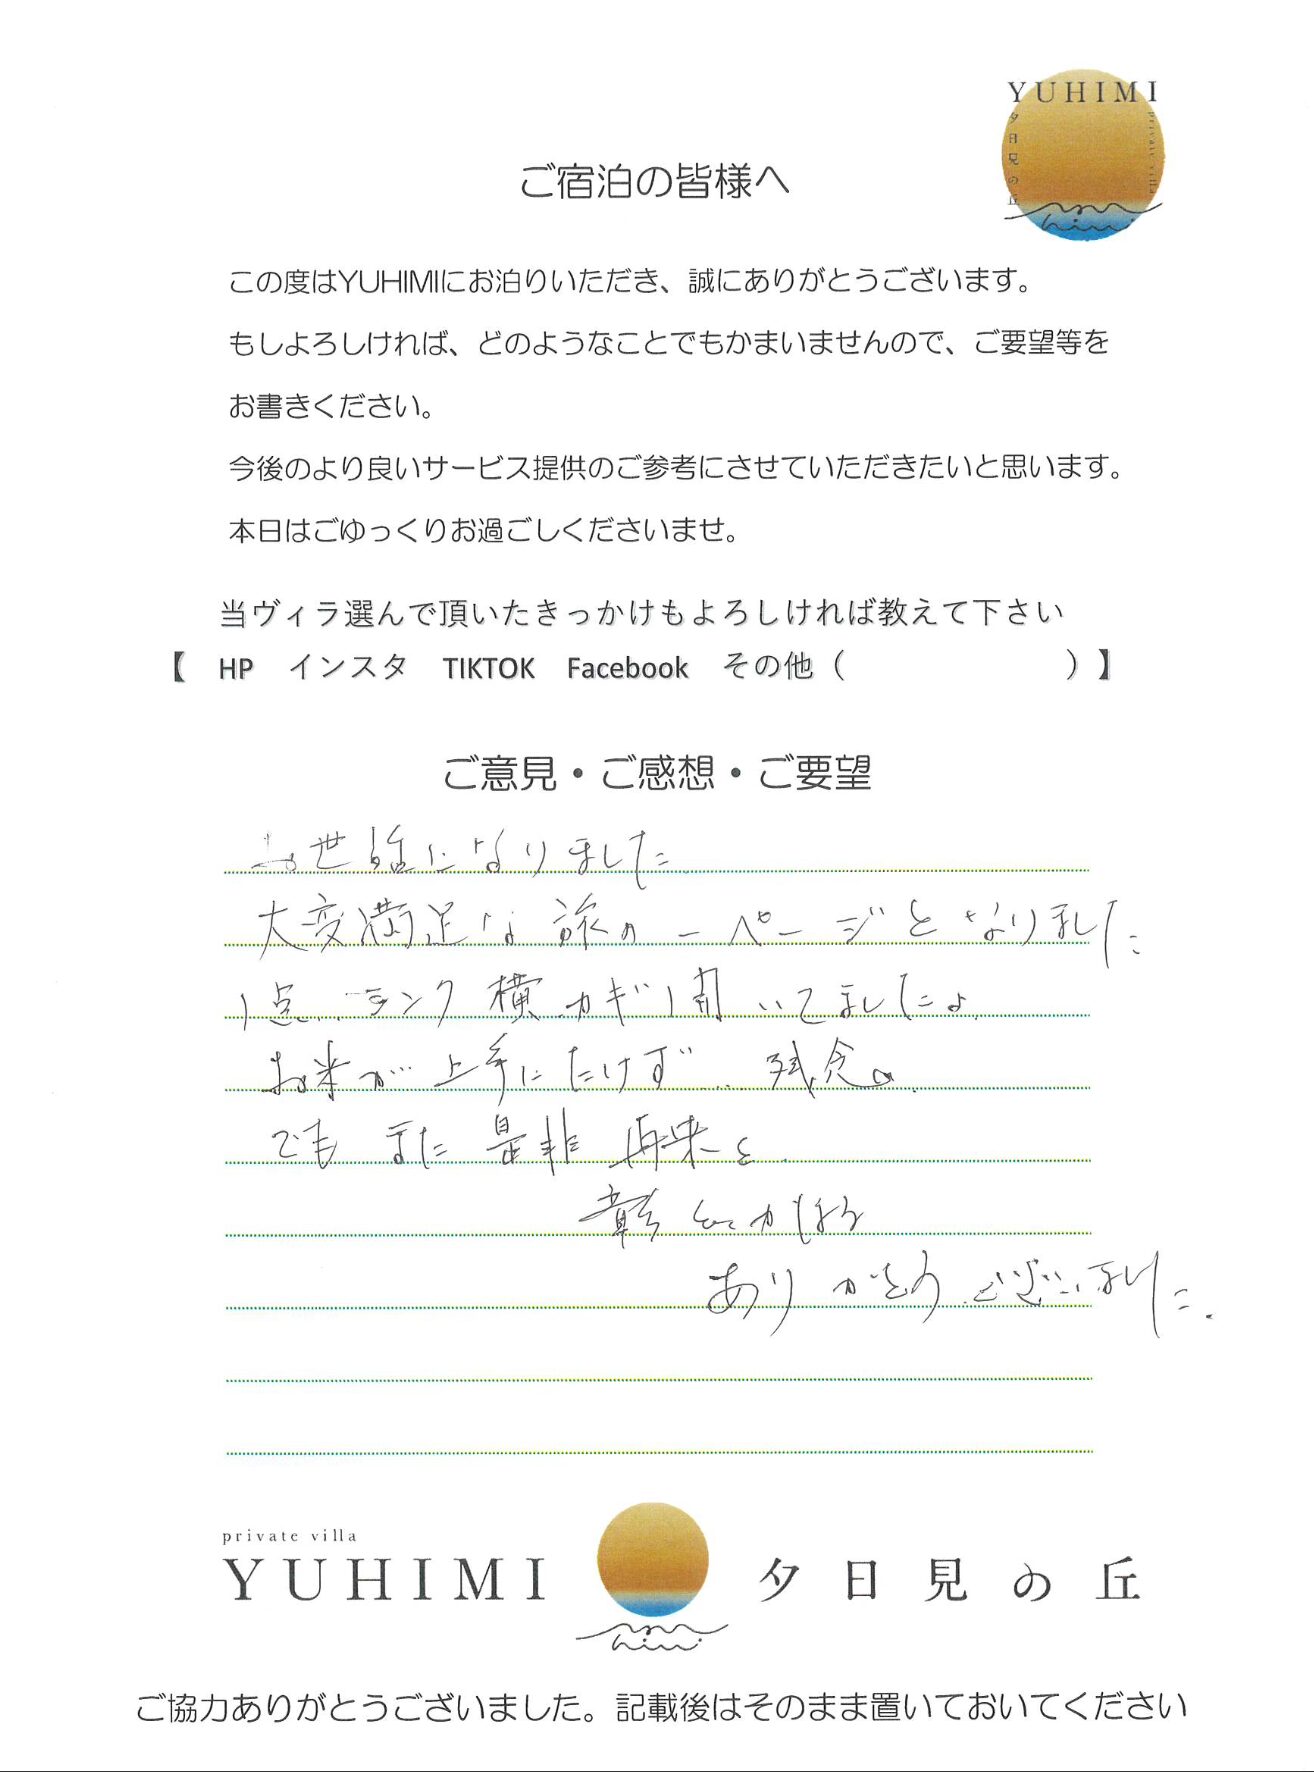 YUHIMI
夕日見の丘
private villa
ご宿泊の皆様へ
この度はYUHIMIにお泊りいただき、誠にありがとうございます。
もしよろしければ、どのようなことでもかまいませんので、ご要望等を
お書きください。
今後のより良いサービス提供のご参考にさせていただきたいと思います。
本日はごゆっくりお過ごしくださいませ。
当ヴィラ選んで頂いたきっかけもよろしければ教えて下さい
【 HP インスタ TIKTOK Facebook その他（ ）】
ご意見・ご感想・ご要望
お世話になりました
大変満足な旅の一ページとなりました
1点..ランク横カギ開いてましたよ.
お米が上手にたけず... 残念。
でもまた是非再来を.
ありがとうございました.
private villa
YUHIMI 夕日見の丘
ご協力ありがとうございました。記載後はそのまま置いておいてください